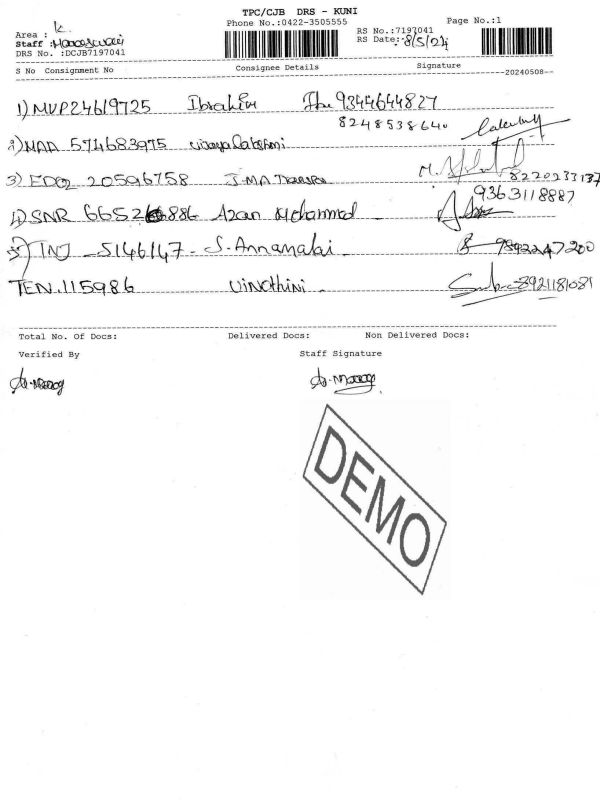 TPC/CJB DRS - KUNI
Phone No.:0422-3505555
Page No.:1
Area : K.
RS No.:7197041
Staff :
RS Date: 8/5/24
DRS No. :DCJB7197041
S No Consignment No Consignee Details Signature
--20240508--
1) MVP24619725 Ibrahim 9344644827
8248538640
2) MAA 574683975 Vijayalakshmi
3) EDQ 20596758 J.M.A 8220233137
9363118887
4) SNR 6652 886 Azan Mohammed -
5) TNJ -5146147- S. Annamalai - 9842247200
TEN.115986 Vinothini . 8921181081
Total No. Of Docs: Delivered Docs: Non Delivered Docs:
Verified By Staff Signature
DEMO